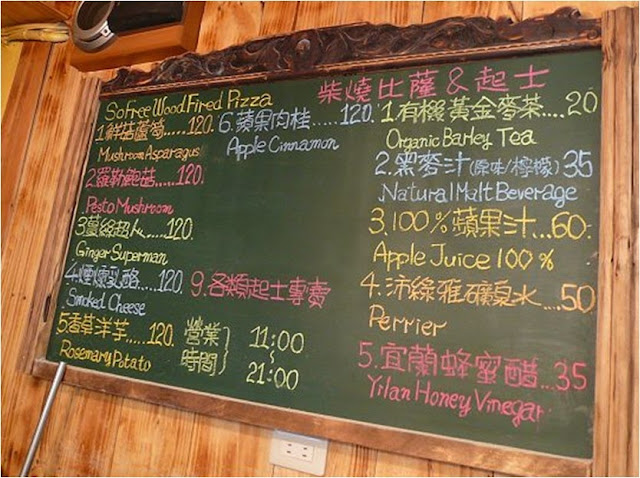 柴燒比薩&起士
SoFree Wood Fired Pizza
1.鮮菇蘆筍.....120.
Mushroom Asparagus
2.羅勒鮑菇.....120.
Pesto Mushroom
3.薑絲超人.....120.
Ginger Superman
4.煙燻乳酪.....120.
Smoked Cheese
5.香草洋芋....120.
Rosemary Potato
6.蘋果肉桂.....120.
Apple Cinnamon
9.各類起士專賣
營業時間} 11:00
~
21:00
1.有機黃金麥茶....20
Organic Barley Tea
2.黑麥汁(原味/檸檬)35
Natural Malt Beverage
3.100%蘋果汁...60.
Apple Juice 100%
4.沛綠雅礦泉水....50
Perrier
5.宜蘭蜂蜜醋...35
Yilan Honey Vinegar